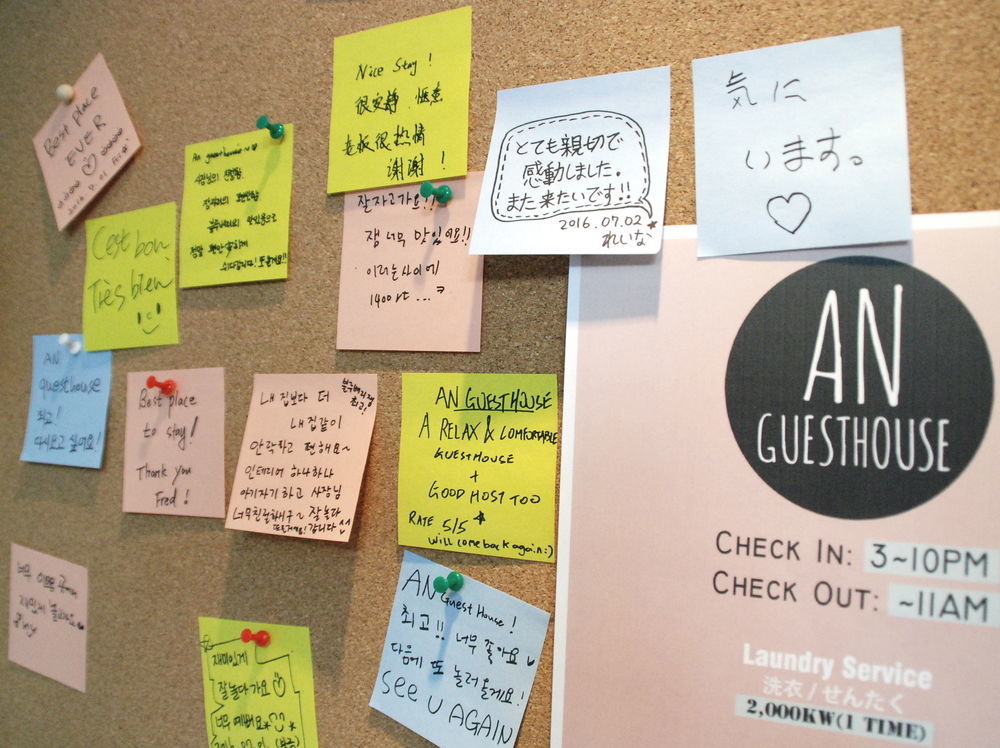 Best place
EVER
2016. 7. 01
An guesthouse~
사장님의 친절함
C'est bon,
Très bien
Nice Stay!
很安静 惬意
老板很热情
谢谢!
잘 자고가요!!
잼 너무 맛있어요!!
이러는 사이에
とても親切で
感動しました。
また来たいです!!
2016.07.02
れいな
気に
います。
AN
guesthouse
최고!
다시오고 싶어요!
Best place
to stay!
Thank you
Fred!
내 집보다 더
내 집같이
안락하고 편해요~
인테리어 하나하나
아기자기하고 사장님
너무친절하시구~ 잘 놀다
갑니다
AN GUESTHOUSE
A RELAX & COMFORTABLE
GUESTHOUSE
+
GOOD HOST TOO
RATE 5/5
will come back again :)
너무 이쁜 곳에서
재밌게 놀다가요
AN Guest House!
최고!! 너무 좋아요
다음에 또 놀러올게요!
See U AGAIN
재미있게
잘놀다가요
너무 예뻐요
AN
GUESTHOUSE
CHECK IN: 3~10PM
CHECK OUT: ~11AM
Laundry Service
洗衣/せんたく
2,000KW(1 TIME)